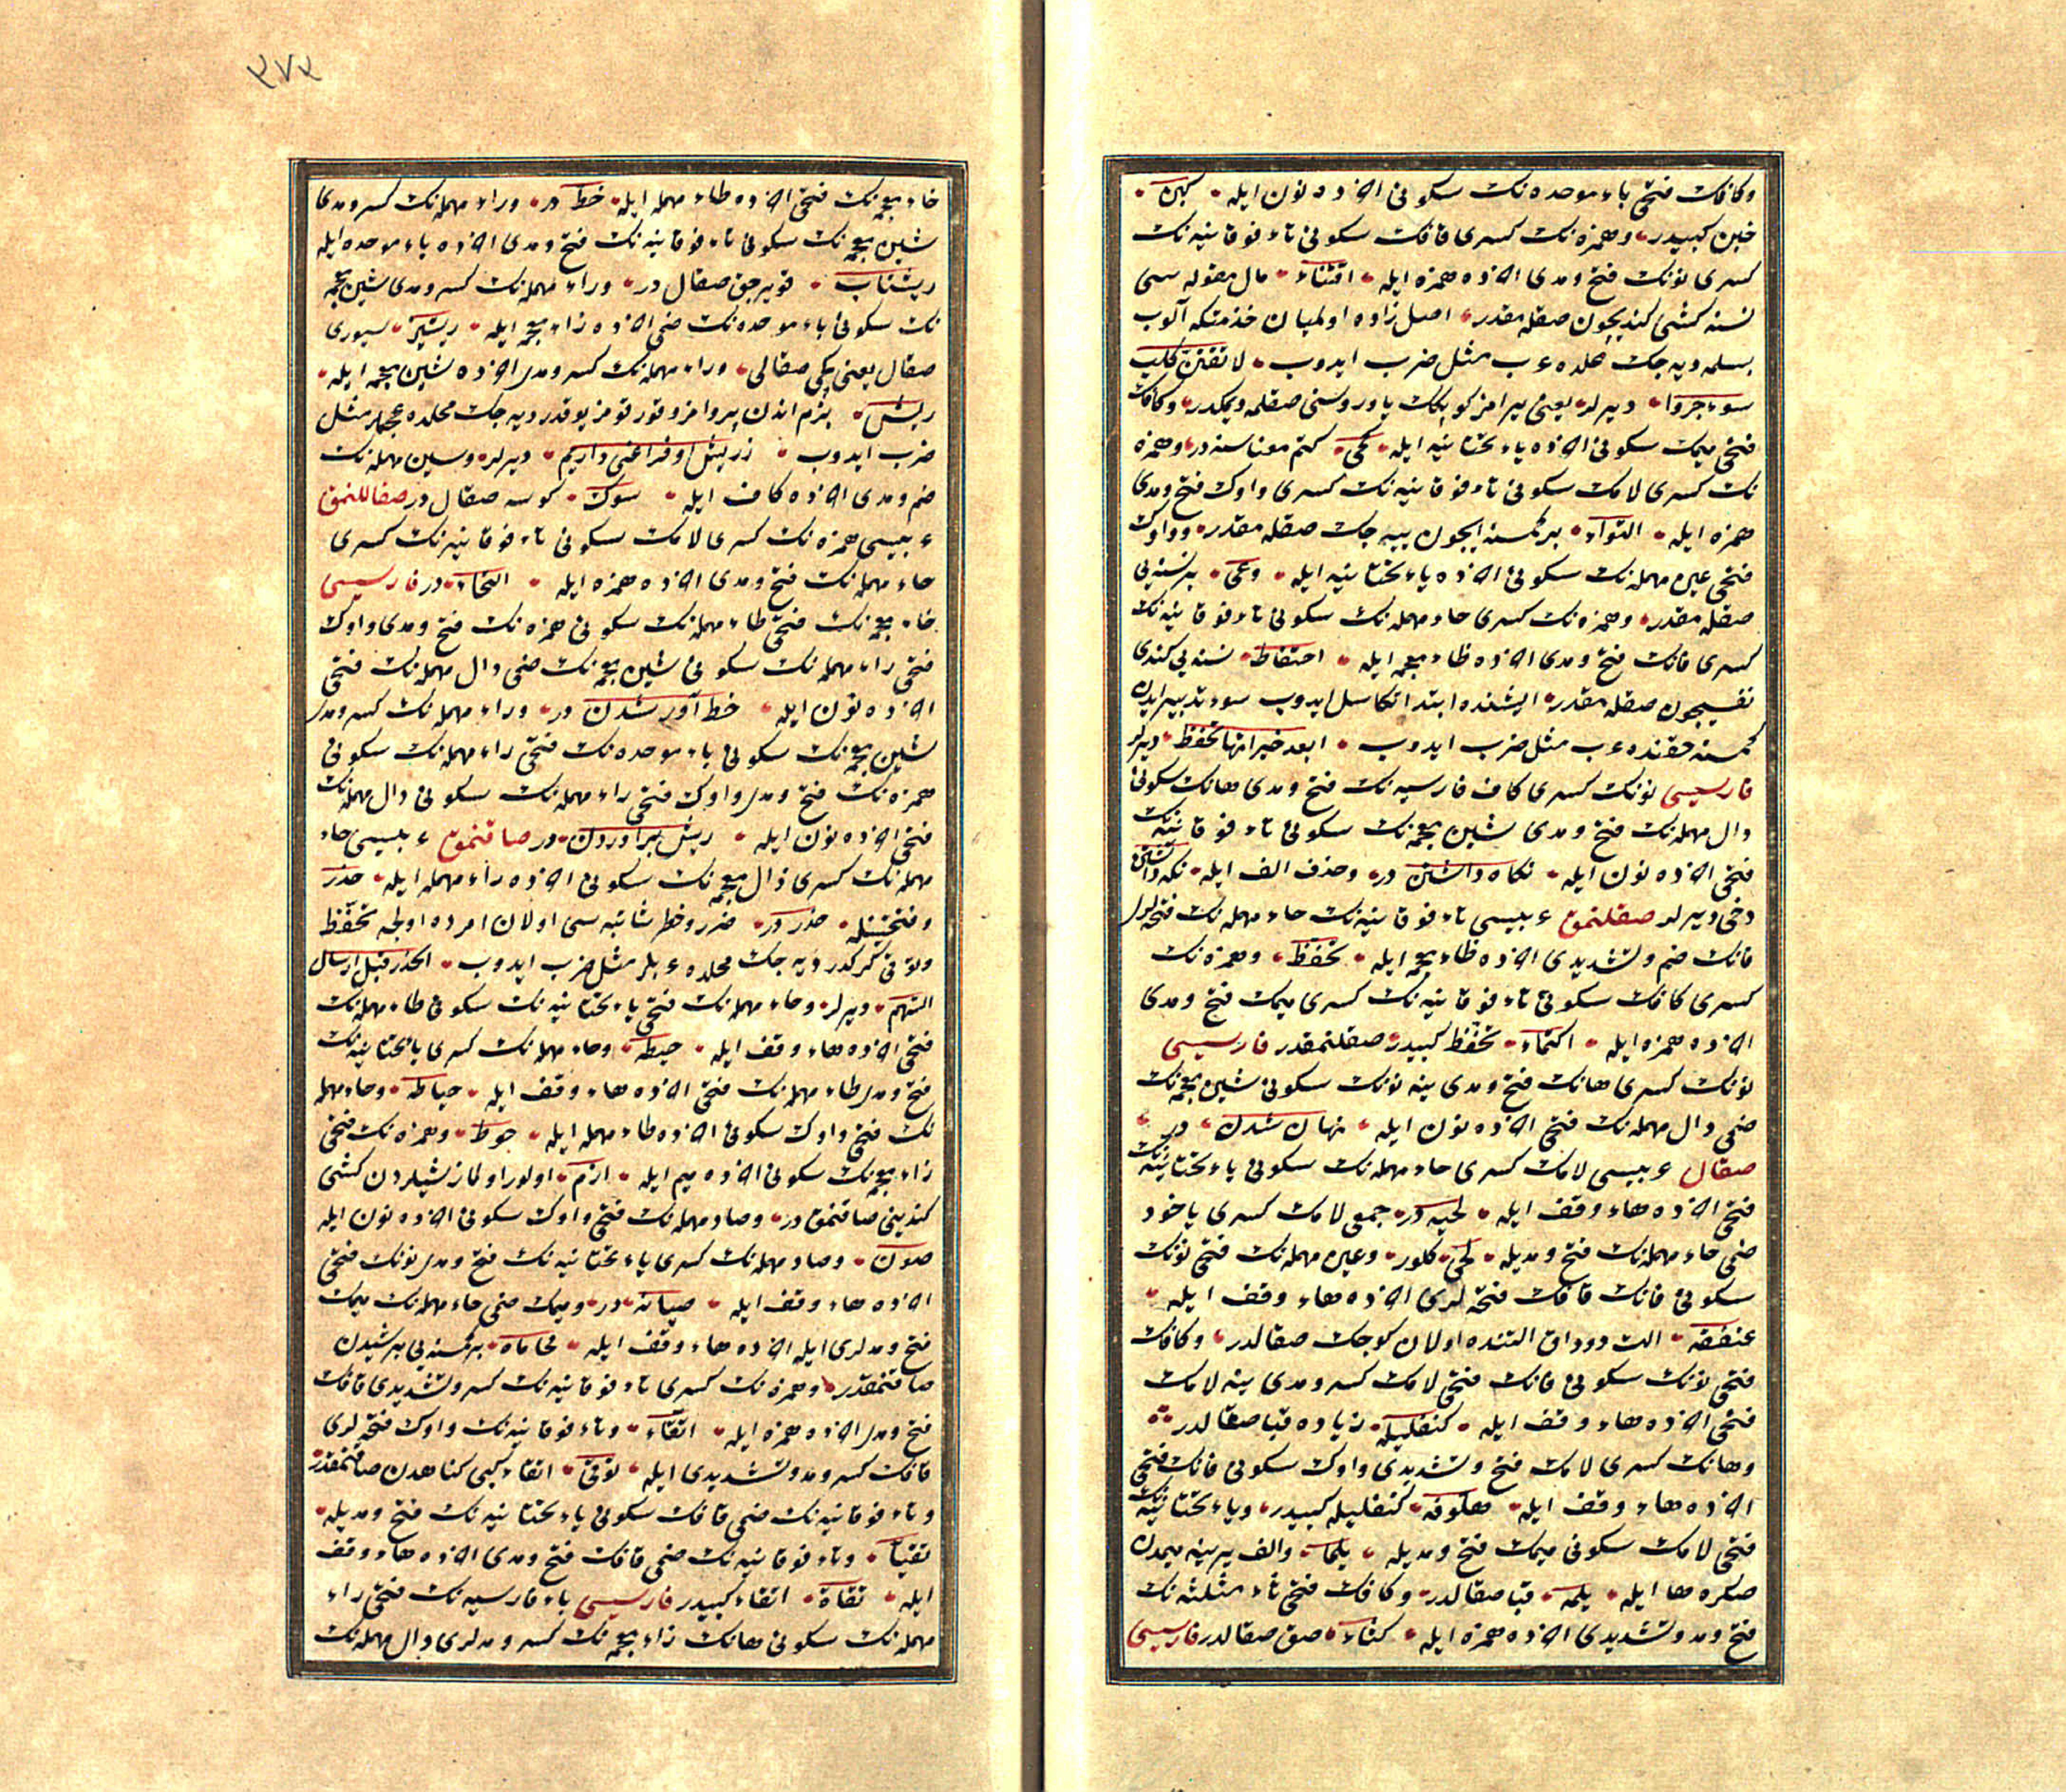 وكافك فتحى باء موحده نك سكونى اخرده نون ايله كبن
خبن كبيدر وهمزه نك كسرى قافك سكونى تاء فوقانيه نك
كسرى نونك فتح ومدى اخرده همزه ايله اقتناء مال مقوله سى
نسنه كشى كنديچون صقله مقدر اصل زاده اولميان خذمتكه آلوب
بسلمه ديه جك محلده عرب مثل ضرب ايدوب لا تقتن كلب
سوء جروا ديرلر يعنى يرامز كوپكك ياوروسنى صقلمه ديمكدر وكافك
فتحى ميمك سكونى اخرده ياء تحتانيه ايله كمى كتم معناسنه در وهمزه
نك كسرى لامك سكونى تاء فوقانيه نك كسرى واوك فتح ومدى
همزه ايله التواء بر كمسنه ايچون ييه جك صقله مقدر وواوك
فتحى عين مهمله نك سكونى اخرده ياء تحتانيه ايله وعى بر نسنه يى
صقله مقدر وهمزه نك كسرى حاء مهمله نك سكونى تاء فوقانيه نك
كسرى فانك فتح ومدى اخرده ظاء معجمه ايله احتفاظ نسنه يى كندى
نفسيچون صقله مقدر ايشنده ابتدا تكاسل ايدوب سوء تدبير ايدن
كمسنه حقنده عرب مثل ضرب ايدوب ابعد خيرا منها تحفظ ديرلر
فارسيسى نونك كسرى كاف فارسيه نك فتح ومدى هانك سكونى
دال مهمله نك فتح ومدى شين معجمه نك سكونى تاء فوقانيه نك
فتحى اخرده نون ايله نكاه داشتن در وحذف الف ايله نكه داشتن
دخى ديرلر صقلنمق عربيسى تاء فوقانيه نك حاء مهمله نك فتحه لرى
فانك ضم وتشديدى اخرده ظاء معجمه ايله تحفظ وهمزه نك
كسرى كافك سكونى تاء فوقانيه نك كسرى ميمك فتح ومدى
اخرده همزه ايله اكتماء تحفظ كبيدر صقلنمقدر فارسيسى
نونك كسرى هانك فتح ومدى ينه نونك سكونى شين معجمه نك
ضمى دال مهمله نك فتحى اخرده نون ايله نهان شدن در
صقال عربيسى لامك كسرى حاء مهمله نك سكونى ياء تحتانيه نك
فتحى اخرده هاء وقف ايله لحيه در جمعى لامك كسرى ياخود
ضمى حاء مهمله نك فتح ومديله لحى كلور وعين مهمله نك فتحى نونك
سكونى فانك قافك فتحه لرى اخرده هاء وقف ايله
عنفقه الت دوداق التنده اولان كوجك صقالدر وكافك
فتحى نونك سكونى فانك فتحى لامك كسر ومدى ينه لامك
فتحى اخرده هاء وقف ايله كنفليله زياده قبا صقالدر
وهانك كسرى لامك فتح وتشديدى واوك سكونى فانك فتحى
اخرده هاء وقف ايله هلوفه كنفليله كبيدر وياء تحتانيه نك
فتحى لامك سكونى ميمك فتح ومديله يلما والف يرينه ميمدن
صكره ها ايله يلمه قبا صقالدر وكافك فتحى ثاء مثلثه نك
فتح ومد وتشديدى اخرده همزه ايله كثاء صق صقالدر فارسيسى
٣٧٣
خاء معجمه نك فتحى اخرده طاء مهمله ايله خط در وراء مهمله نك كسر ومدى
شين معجمه نك سكونى تاء فوقانيه نك فتح ومدى اخرده باء موحده ايله
ريشتاب قويرجق صقال در وراء مهمله نك كسر ومدى شين معجمه
نك سكونى باء موحده نك ضمى اخرده زاء معجمه ايله ريشبز سيورى
صقال يعنى پكى صقالى وراء مهمله نك كسر ومدى اخرده شين معجمه ايله
ريش بزم اندن پروامز وقورقومز يوقدر ديه جك محلده عجملر مثل
ضرب ايدوب زريش او فراغتى داريم ديرلر وسين مهمله نك
ضم ومدى اخرده كاف ايله سوك كوسه صقال در صقاللنمق
عربيسى همزه نك كسرى لامك سكونى تاء فوقانيه نك كسرى
حاء مهمله نك فتح ومدى اخرده همزه ايله التحاء در فارسيسى
خاء معجمه نك فتحى طاء مهمله نك سكونى همزه نك فتح ومدى واوك
فتحى راء مهمله نك سكونى شين معجمه نك ضمى دال مهمله نك فتحى
اخرده نون ايله خط آور شدن در وراء مهمله نك كسر ومدى
شين معجمه نك سكونى باء موحده نك فتحى راء مهمله نك سكونى
همزه نك فتح ومدى واوك فتحى راء مهمله نك سكونى دال مهمله نك
فتحى اخرده نون ايله ريش براوردن در صاقنمق عربيسى حاء
مهمله نك كسرى ذال معجمه نك سكونى اخرده راء مهمله ايله حذر
وفتحتينله حذر در ضرر وخطر شائبه سى اولان امرده اولجه تحفظ
وتوقى كركدر ديه جك محلده عربلر مثل ضرب ايدوب الحذر قبل ارسال
السهم ديرلر وحاء مهمله نك فتحى ياء تحتانيه نك سكونى طاء مهمله نك
فتحى اخرده هاء وقف ايله حيطه وحاء مهمله نك كسرى ياء تحتانيه نك
فتح ومدى طاء مهمله نك فتحى اخرده هاء وقف ايله حياطه وحاء مهمله
نك فتحى واوك سكونى اخرده طاء مهمله ايله حوط وهمزه نك فتحى
زاء معجمه نك سكونى اخرده ميم ايله ازم اولور اولماز شيلردن كشى
كنديينى صاقنمق در وصاد مهمله نك فتحى واوك سكونى اخرده نون ايله
صون وصاد مهمله نك كسرى ياء تحتانيه نك فتح ومدى نونك فتحى
اخرده هاء وقف ايله صيانه در وميمك ضمى حاء مهمله نك ميمك
فتح ومدلرى ايله اخرده هاء وقف ايله محاماه بر كمسنه يى بر شيدن
صاقنمقدر وهمزه نك كسرى تاء فوقانيه نك كسر وتشديدى قافك
فتح ومدى اخرده همزه ايله اتقاء وتاء فوقانيه نك واوك فتحه لرى
قافك كسر ومد وتشديدى ايله توقى اتقاء كبى كناهدن صاقنمقدر
وتاء فوقانيه نك ضمى قافك سكونى ياء تحتانيه نك فتح ومديله
تقيا وتاء فوقانيه نك ضمى قافك فتح ومدى اخرده هاء وقف
ايله تقاة اتقاء كبيدر فارسيسى باء فارسيه نك فتحى راء
مهمله نك سكونى هانك زاء معجمه نك كسر ومدلرى دال مهمله نك